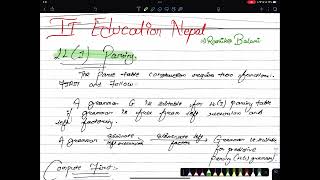 IT Education Nepal
LL(1) Parsing.
The Parse table construction require two functions:
FIRST and Follow.
A grammar G is suitable for LL(1) Parsing table
if grammar is free from left recursion and
left factoring.
A grammar → eliminate left recursion → eliminate left factor → Grammar is suitable
for predictive
parsing (LL(1) grammar)
Compute First:-